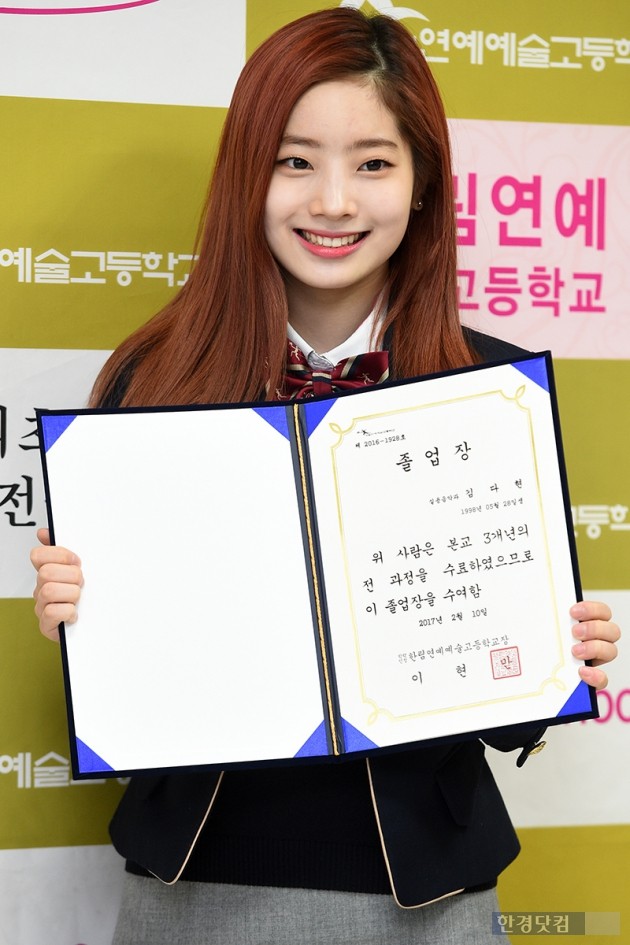 연예예술고등학
림연예
고등학교
예술고등학교
전
예술고
고등학
예술고등학교
제 2016-1928호
졸업장
실용음악과 김다현
1998년 05월 28일생
위 사람은 본교 3개년의
전 과정을 수료하였으므로
이 졸업장을 수여함
2017년 2월 10일
한림연예예술고등학교장
이 현 만
한경닷컴